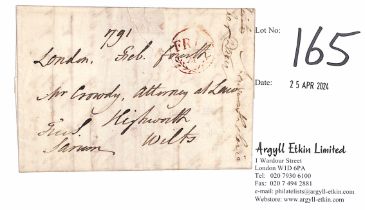 1791
London, Feb. fourth
Mr Crowdy, Attorney at Law
Highworth
Wilts
Sarum
FREE
Lot No: 165
Date: 25 APR 2024
Argyll Etkin Limited
1 Wardour Street
London W1D 6PA
Tel: 020 7930 6100
Fax: 020 7494 2881
e-mail: philatelists@argyll-etkin.com
Webstore: www.argyll-etkin.com